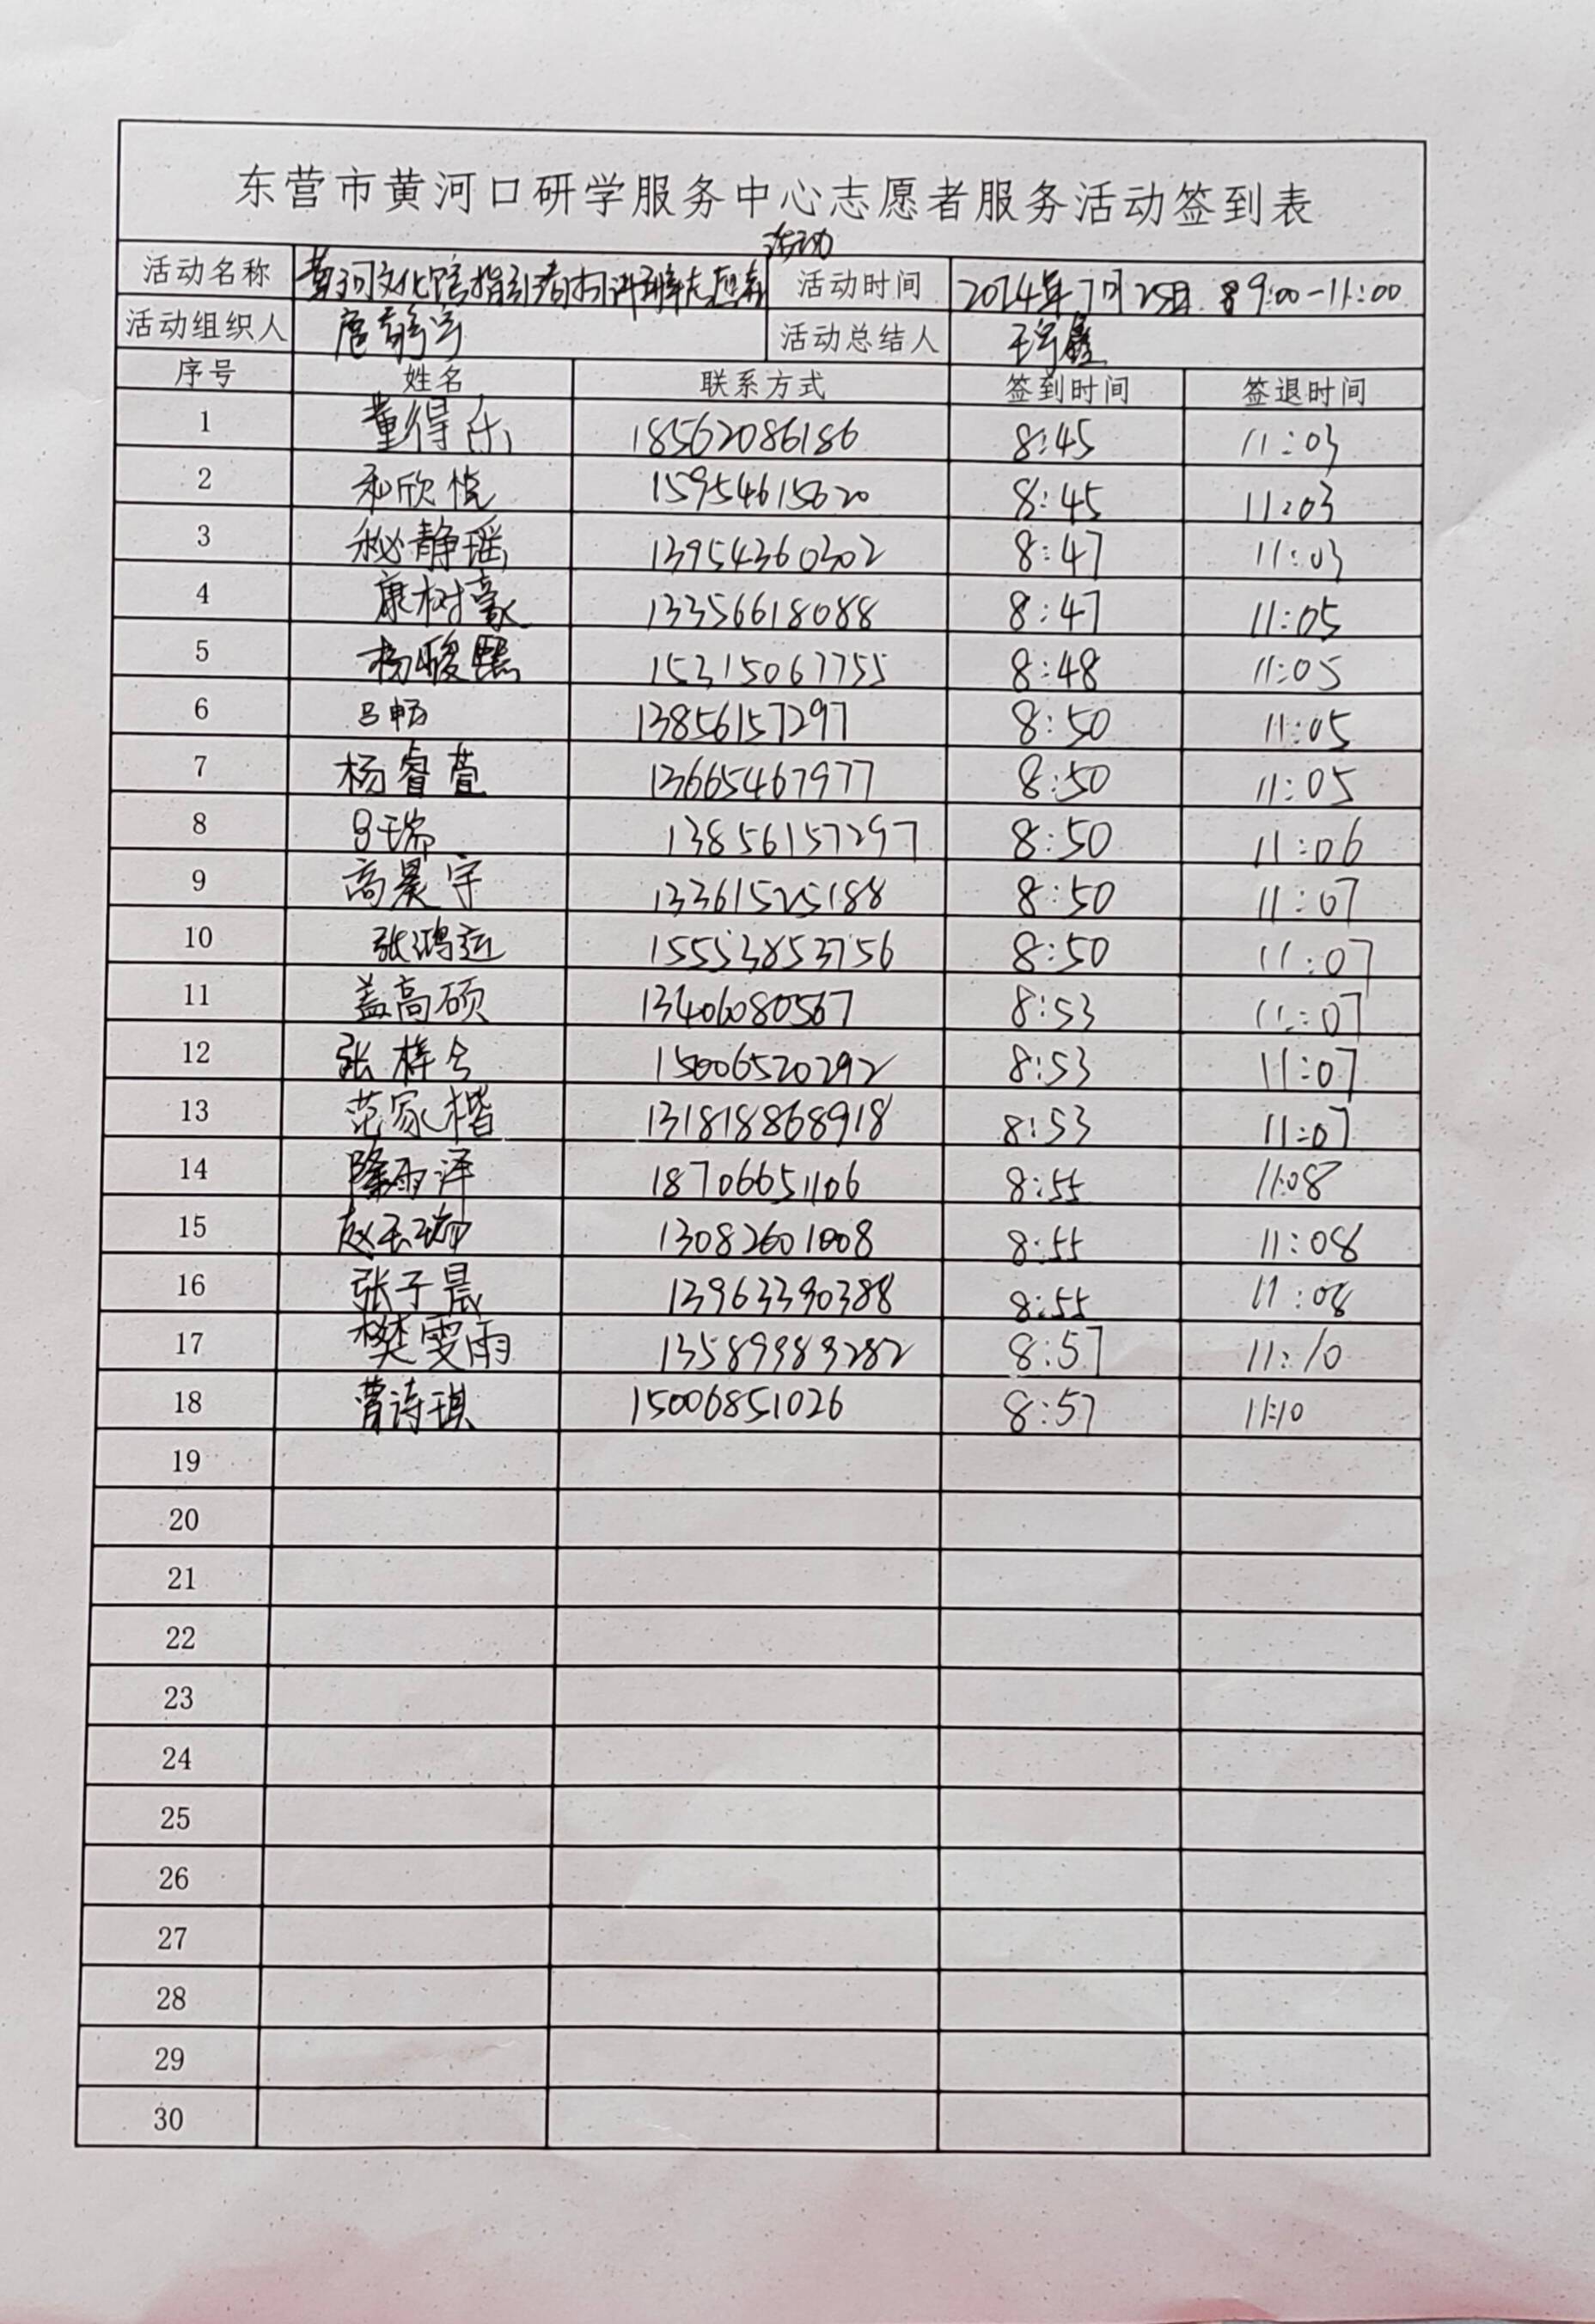 东营市黄河口研学服务中心志愿者服务活动签到表
活动
活动名称 黄河文化馆指引者 志愿者 活动时间 2024年7月25日 9:00-11:00
活动组织人 唐静宇 活动总结人 王宇鑫
序号 姓名 联系方式 签到时间 签退时间
1 董得乐 18562086186 8:45 11:03
2 和欣悦 15954615620 8:45 11:03
3 秘静瑶 13954360302 8:47 11:03
4 康树豪 13356618088 8:47 11:05
5 杨骏 15315067755 8:48 11:05
6 吕畅 13856157297 8:50 11:05
7 杨睿萱 13665467977 8:50 11:05
8 吕瑞 13856157297 8:50 11:06
9 高晨宇 13361525188 8:50 11:07
10 张鸿运 15553853756 8:50 11:07
11 盖高硕 13406080567 8:53 11:07
12 张梓 15006520292 8:53 11:07
13 范家楷 131818868918 8:53 11:07
14 隆雨泽 18706651106 8:55 11:08
15 赵玉珈 13082601008 8:55 11:08
16 张子晨 13963390388 8:55 11:08
17 樊雯雨 13589989282 8:57 11:10
18 曹诗琪 15006851026 8:57 11:10
19
20
21
22
23
24
25
26
27
28
29
30